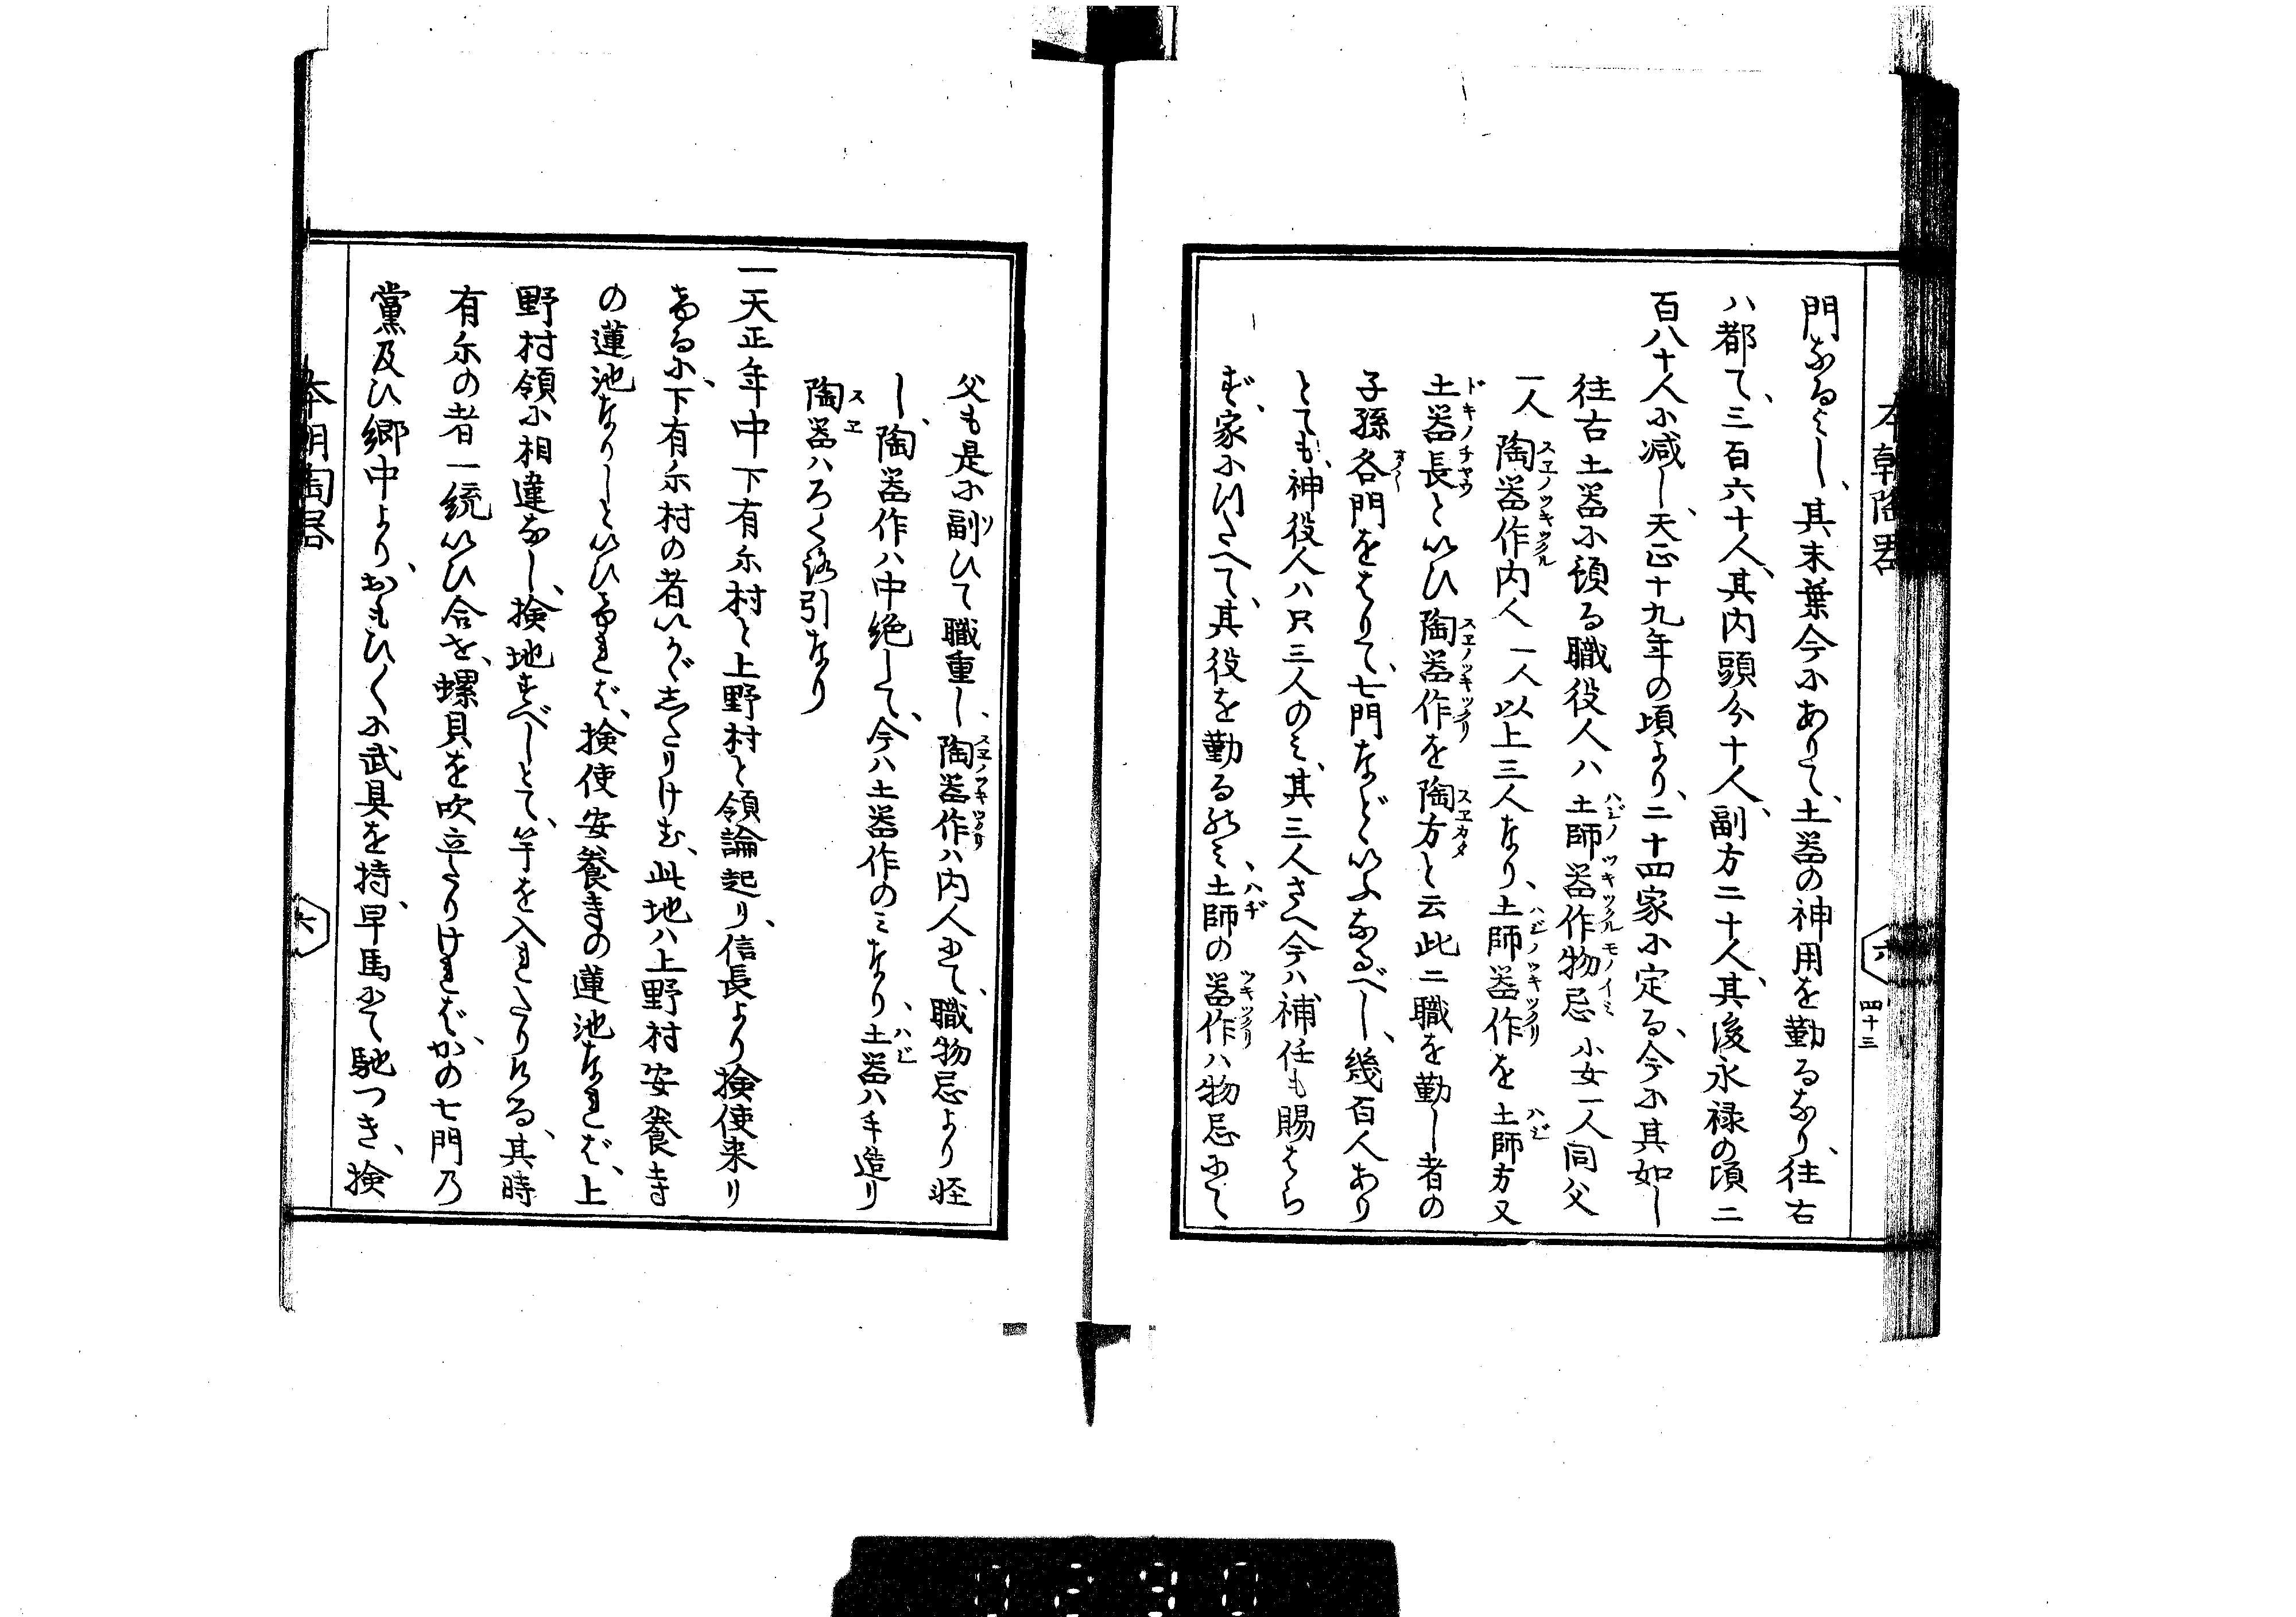 本朝陶器
六
四十三
門なるよし、其末葉今にありて、土器の神用を勤るなり、往右
ハ都て、三百六十人、其内頭分十人、副方二十人、其後永禄の頃二
百八十人に減し、天正十九年の頃より、二十四家に定る、今に其如し
往古土器に預る職役人ハ土師器作物忌小女一人同父
一人陶器作内人一人以上三人なり、土師器作を土師方又
土器長といひ陶器作を陶方と云此二職を勤し者の
子孫各門をはりて、七門などゝいふなるべし、幾百人あり
とても、神役人ハ只三人のミ、其三人さへ今ハ補任も賜はら
ず、家につたへて、其役を勤るのミ、土師の器作ハ物忌にて
父も是に副ひて職重し、陶器作ハ内人にて、職物忌より軽
し、陶器作ハ中絶して、今ハ土器作のミなり、土器ハ手造り
陶器ハろくろ引なり
一天正年中下有尓村と上野村と領論起り、信長より検使来り
けるに、下有尓村の者いかゞしたりけむ、此地ハ上野村安養寺
の蓮池なりしといひければ、検使安養寺の蓮池なれば、上
野村領に相違なし、検地すべしとて、竿を入れたりける、其時
有尓の者一統いひ合せ、螺貝を吹立たりければ、かの七門乃
黨及ひ郷中より、おもひ〱に武具を持、早馬にて馳つき、検
本朝陶器
六